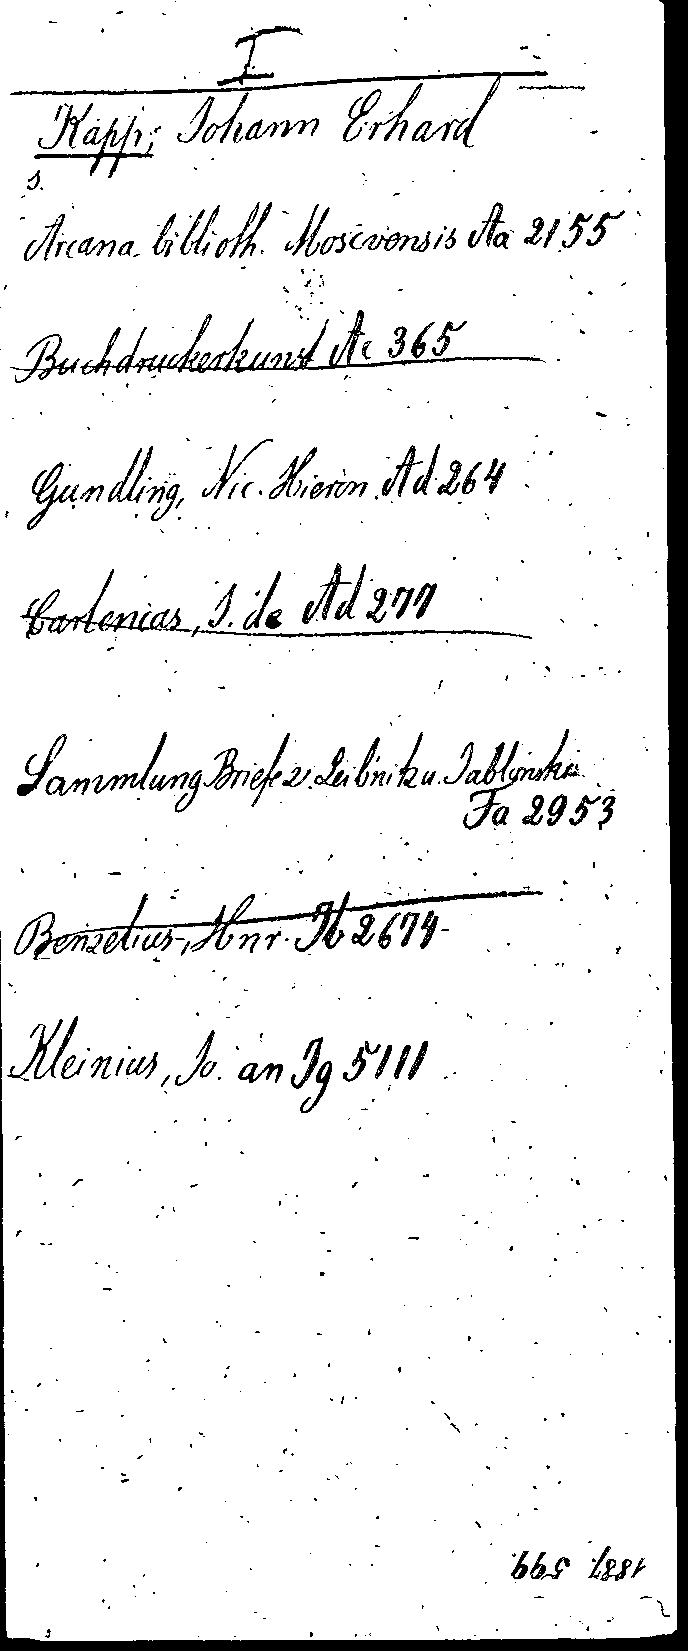 I
Kapp, Johann Erhard
s.
Arcana biblioth. Moscvensis Aa 2155
Buchdruckerkunst Ac 365
Gundling, Nic. Hieron. Ad 264
Cartenias, I. de Ad 277
Sammlung Briefe z. Leibnitz u. Jablonski
Fa 2953
Benzelius, Hnr. Ib 2674
Kleinius, Jo. an Ig 5111
1887 599